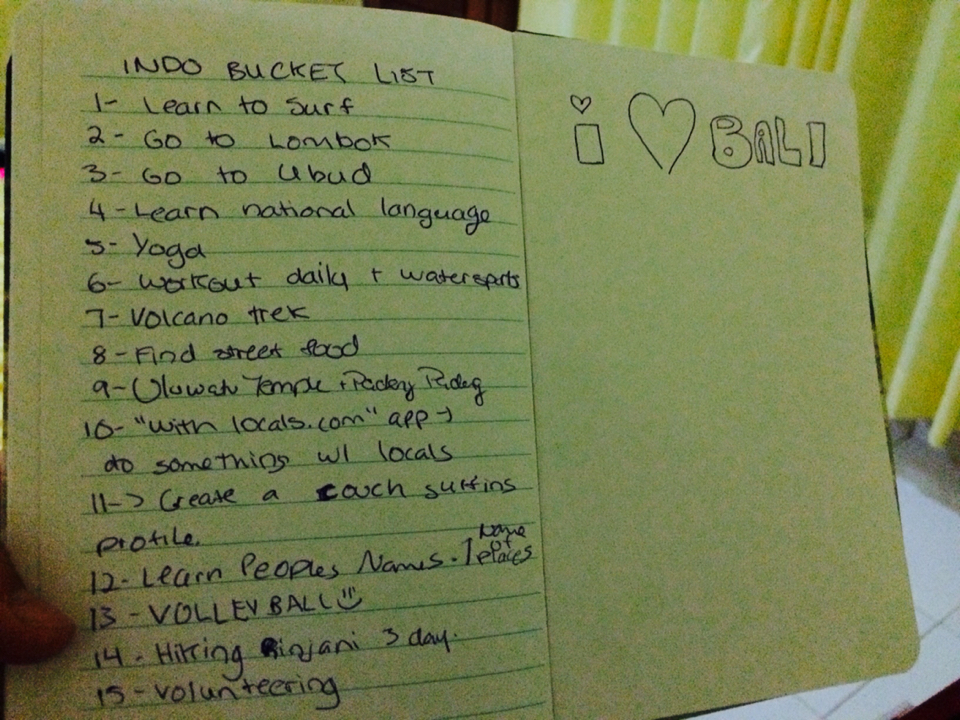 INDO BUCKET LIST
1- Learn to Surf
2- Go to Lombok
3- Go to Ubud
4- Learn national language
5- Yoga
6- workout daily + watersports
7- Volcano trek
8- Find street food
9- Uluwatu Temple + Padang Padang
10- "with locals.com" app →
do something w/ locals
11-> Create a couch surfing
profile.
12- Learn Peoples Names. Name of places
13- VOLLEYBALL
14- Hiking Rinjani 3 day.
15- volunteering
i ♡ BALI